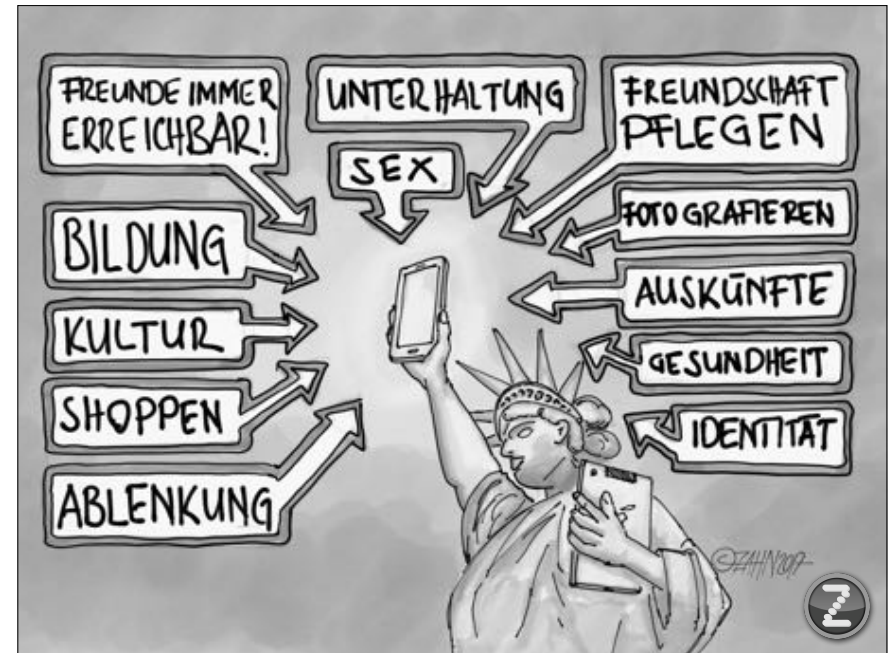 FREUNDE IMMER
ERREICHBAR!
UNTERHALTUNG
FREUNDSCHAFT
PFLEGEN
SEX
FOTOGRAFIEREN
BILDUNG
AUSKÜNFTE
KULTUR
GESUNDHEIT
SHOPPEN
IDENTITÄT
ABLENKUNG
©ZAHN2017
Z